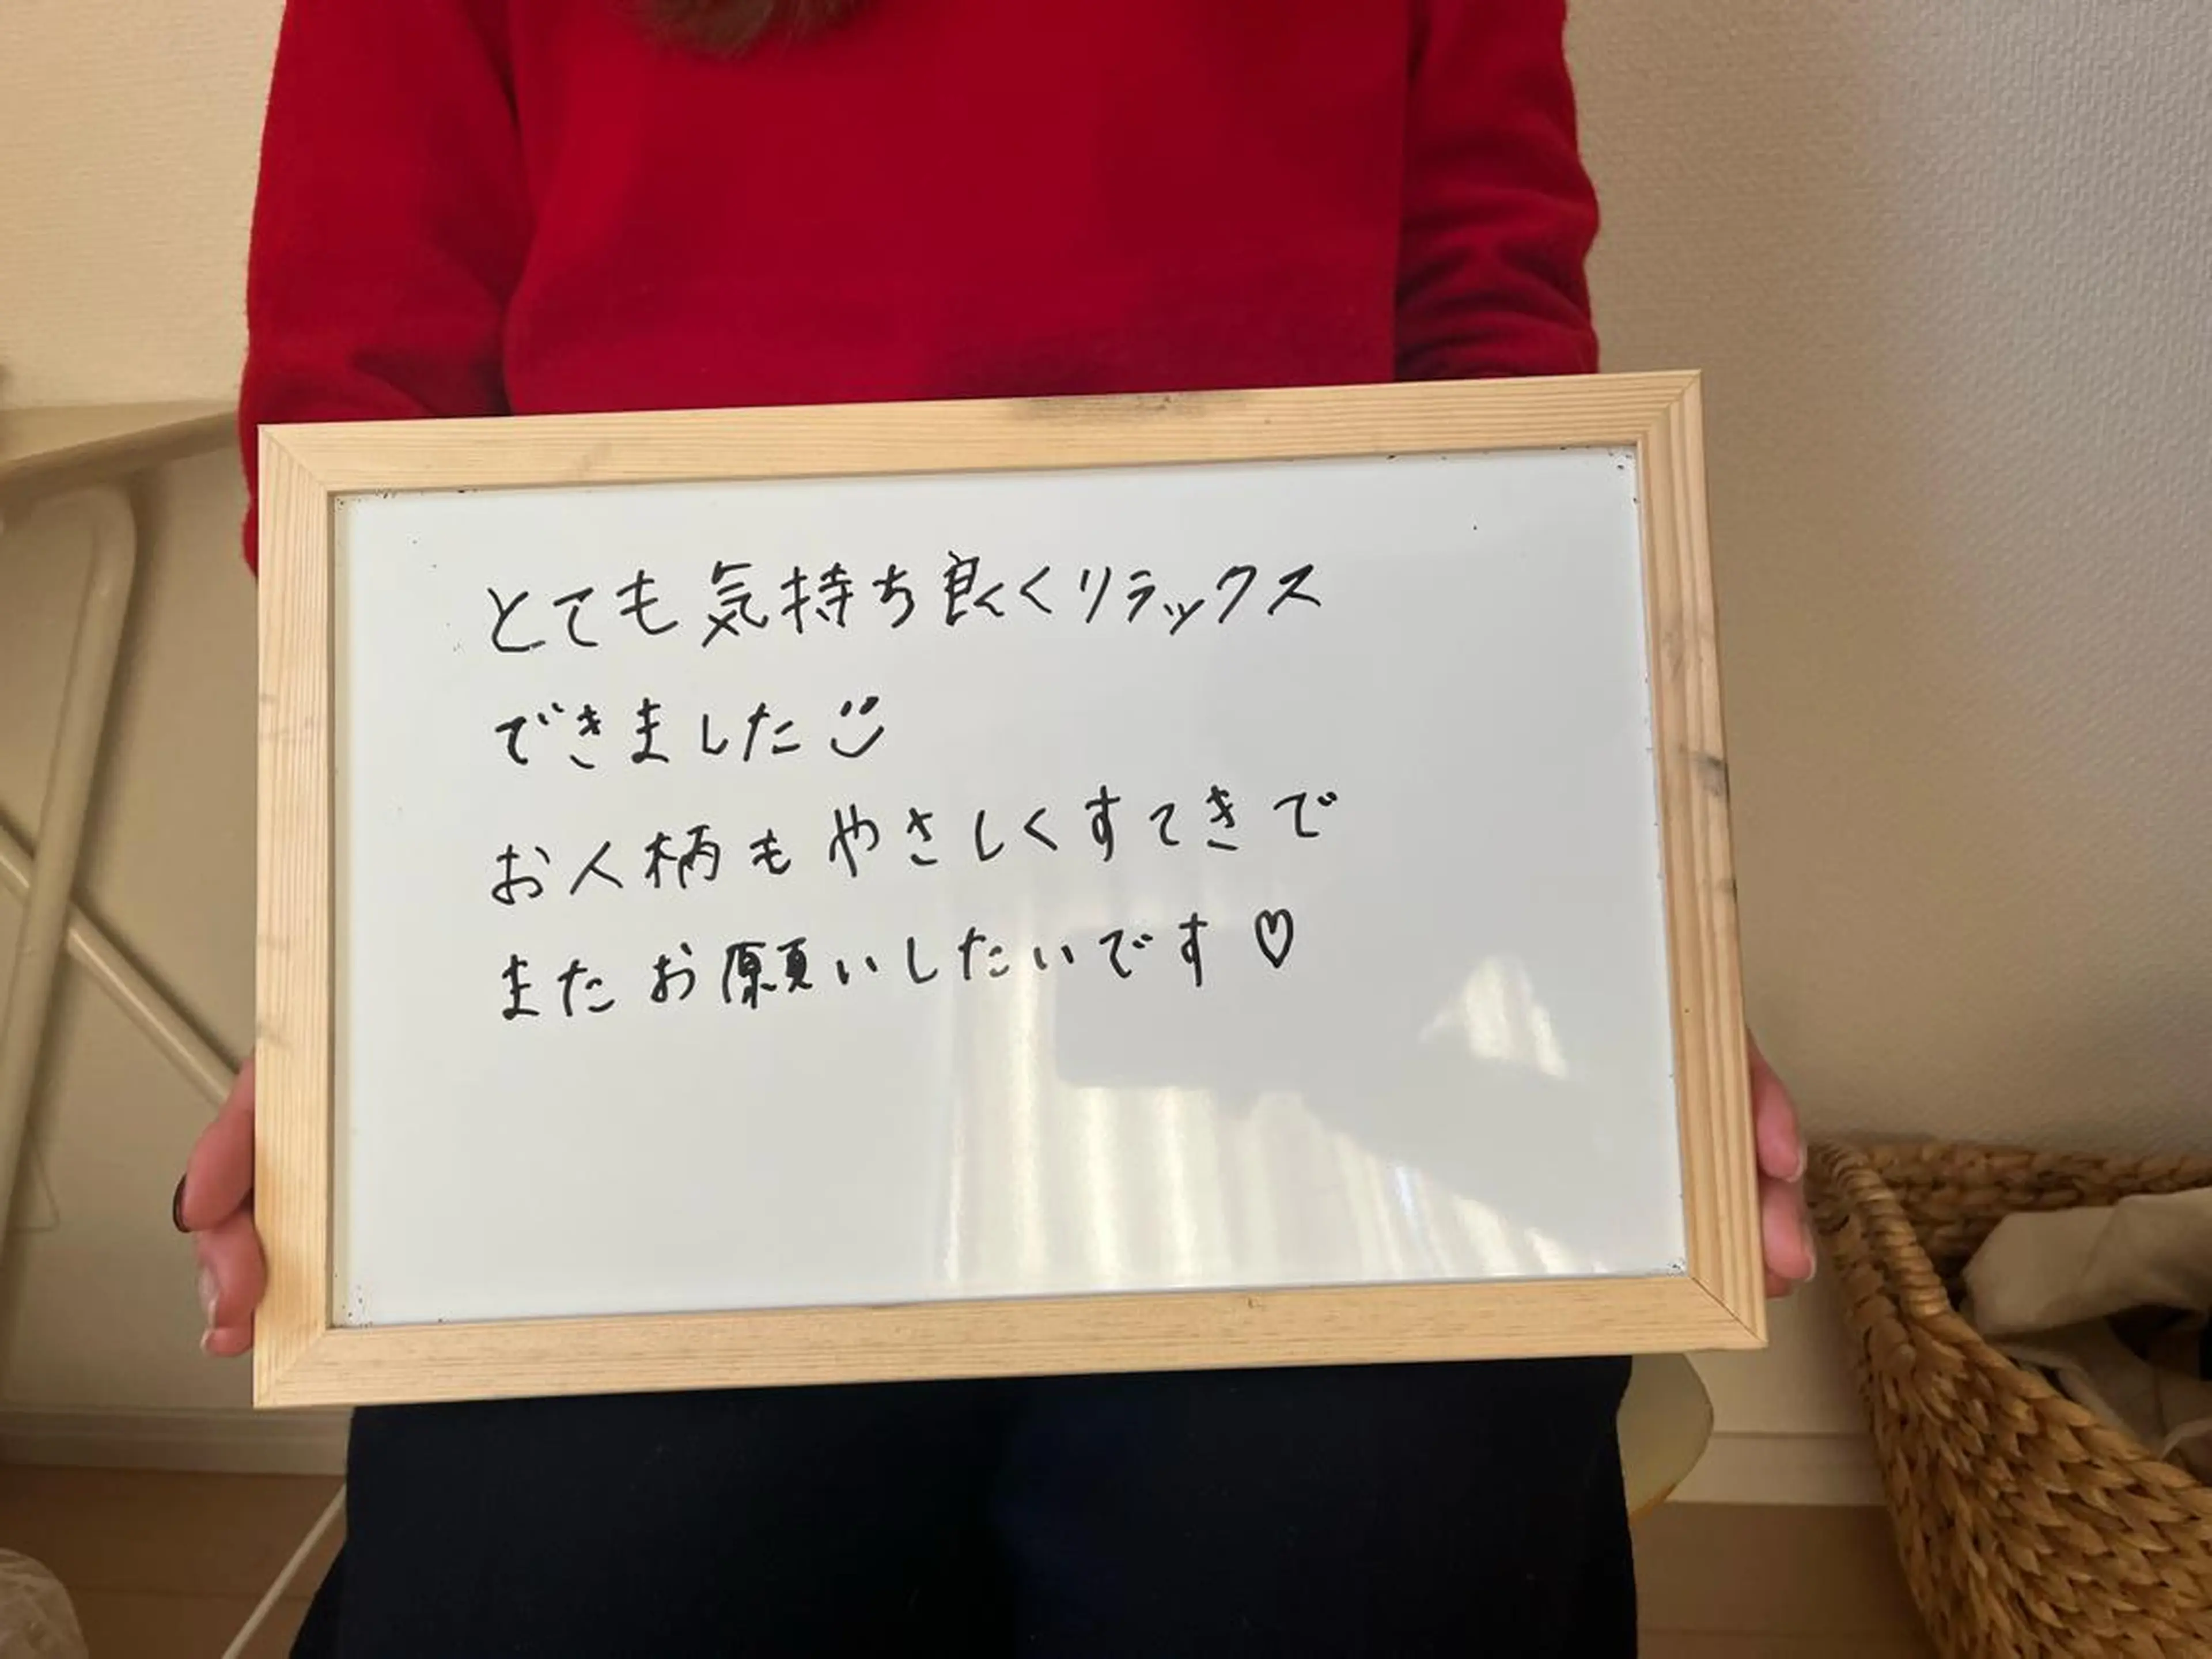 とても気持ち良くリラックス
できました
お人柄もやさしくすてきで
またお願いしたいです♡